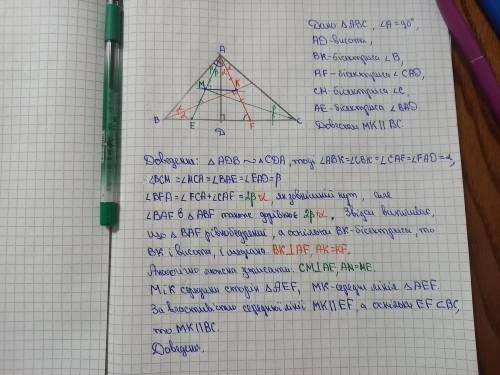 Дано △ABC, ∠A=90°,
AD-висота,
BK-бісектриса ∠B,
AF-бісектриса ∠CAD,
CM-бісектриса ∠C,
AE-бісектриса ∠BAD.
Довести MK∥BC.
A
M
K
B
E
D
F
C
Доведення: △ADB ~ △CDA, тоді ∠ABK=∠CBK=∠CAF=∠FAD=α,
∠BCM=∠MCA=∠BAE=∠EAD=β
∠BFA=∠FCA+∠CAF=2β+α, як зовнішній кут, але
∠BAF в △ABF також дорівнює 2β+α. Звідси випливає,
що △BAF рівнобедрений, а оскільки BK-бісектриса, то
BK і висота, і медіана. BK⊥AF, AK=KF.
Аналогічно можна записати: CM⊥AE, AM=ME.
M і K середини сторін △AEF, MK-середня лінія △AEF.
За властивістю середньої лінії MK∥EF, а оскільки EF⊂BC,
то MK∥BC.
Доведено.